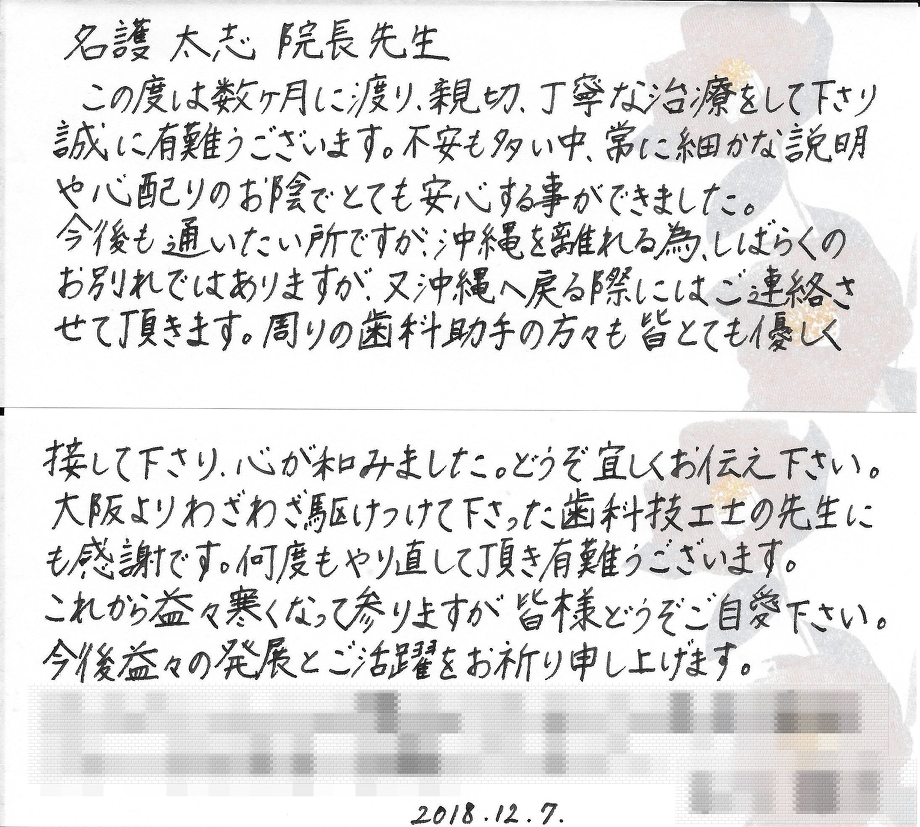 名護 太志 院長先生
この度は数ヶ月に渡り、親切、丁寧な治療をして下さり
誠に有難うございます。不安も多い中、常に細かな説明
や心配りのお陰でとても安心する事ができました。
今後も通いたい所ですが、沖縄を離れる為、しばらくの
お別れではありますが、又沖縄へ戻る際にはご連絡さ
せて頂きます。周りの歯科助手の方々も皆とても優しく
接して下さり、心が和みました。どうぞ宜しくお伝え下さい。
大阪よりわざわざ駆けつけて下さった歯科技工士の先生に
も感謝です。何度もやり直して頂き有難うございます。
これから益々寒くなって参りますが皆様どうぞご自愛下さい。
今後益々の発展とご活躍をお祈り申し上げます。
2018.12.7.